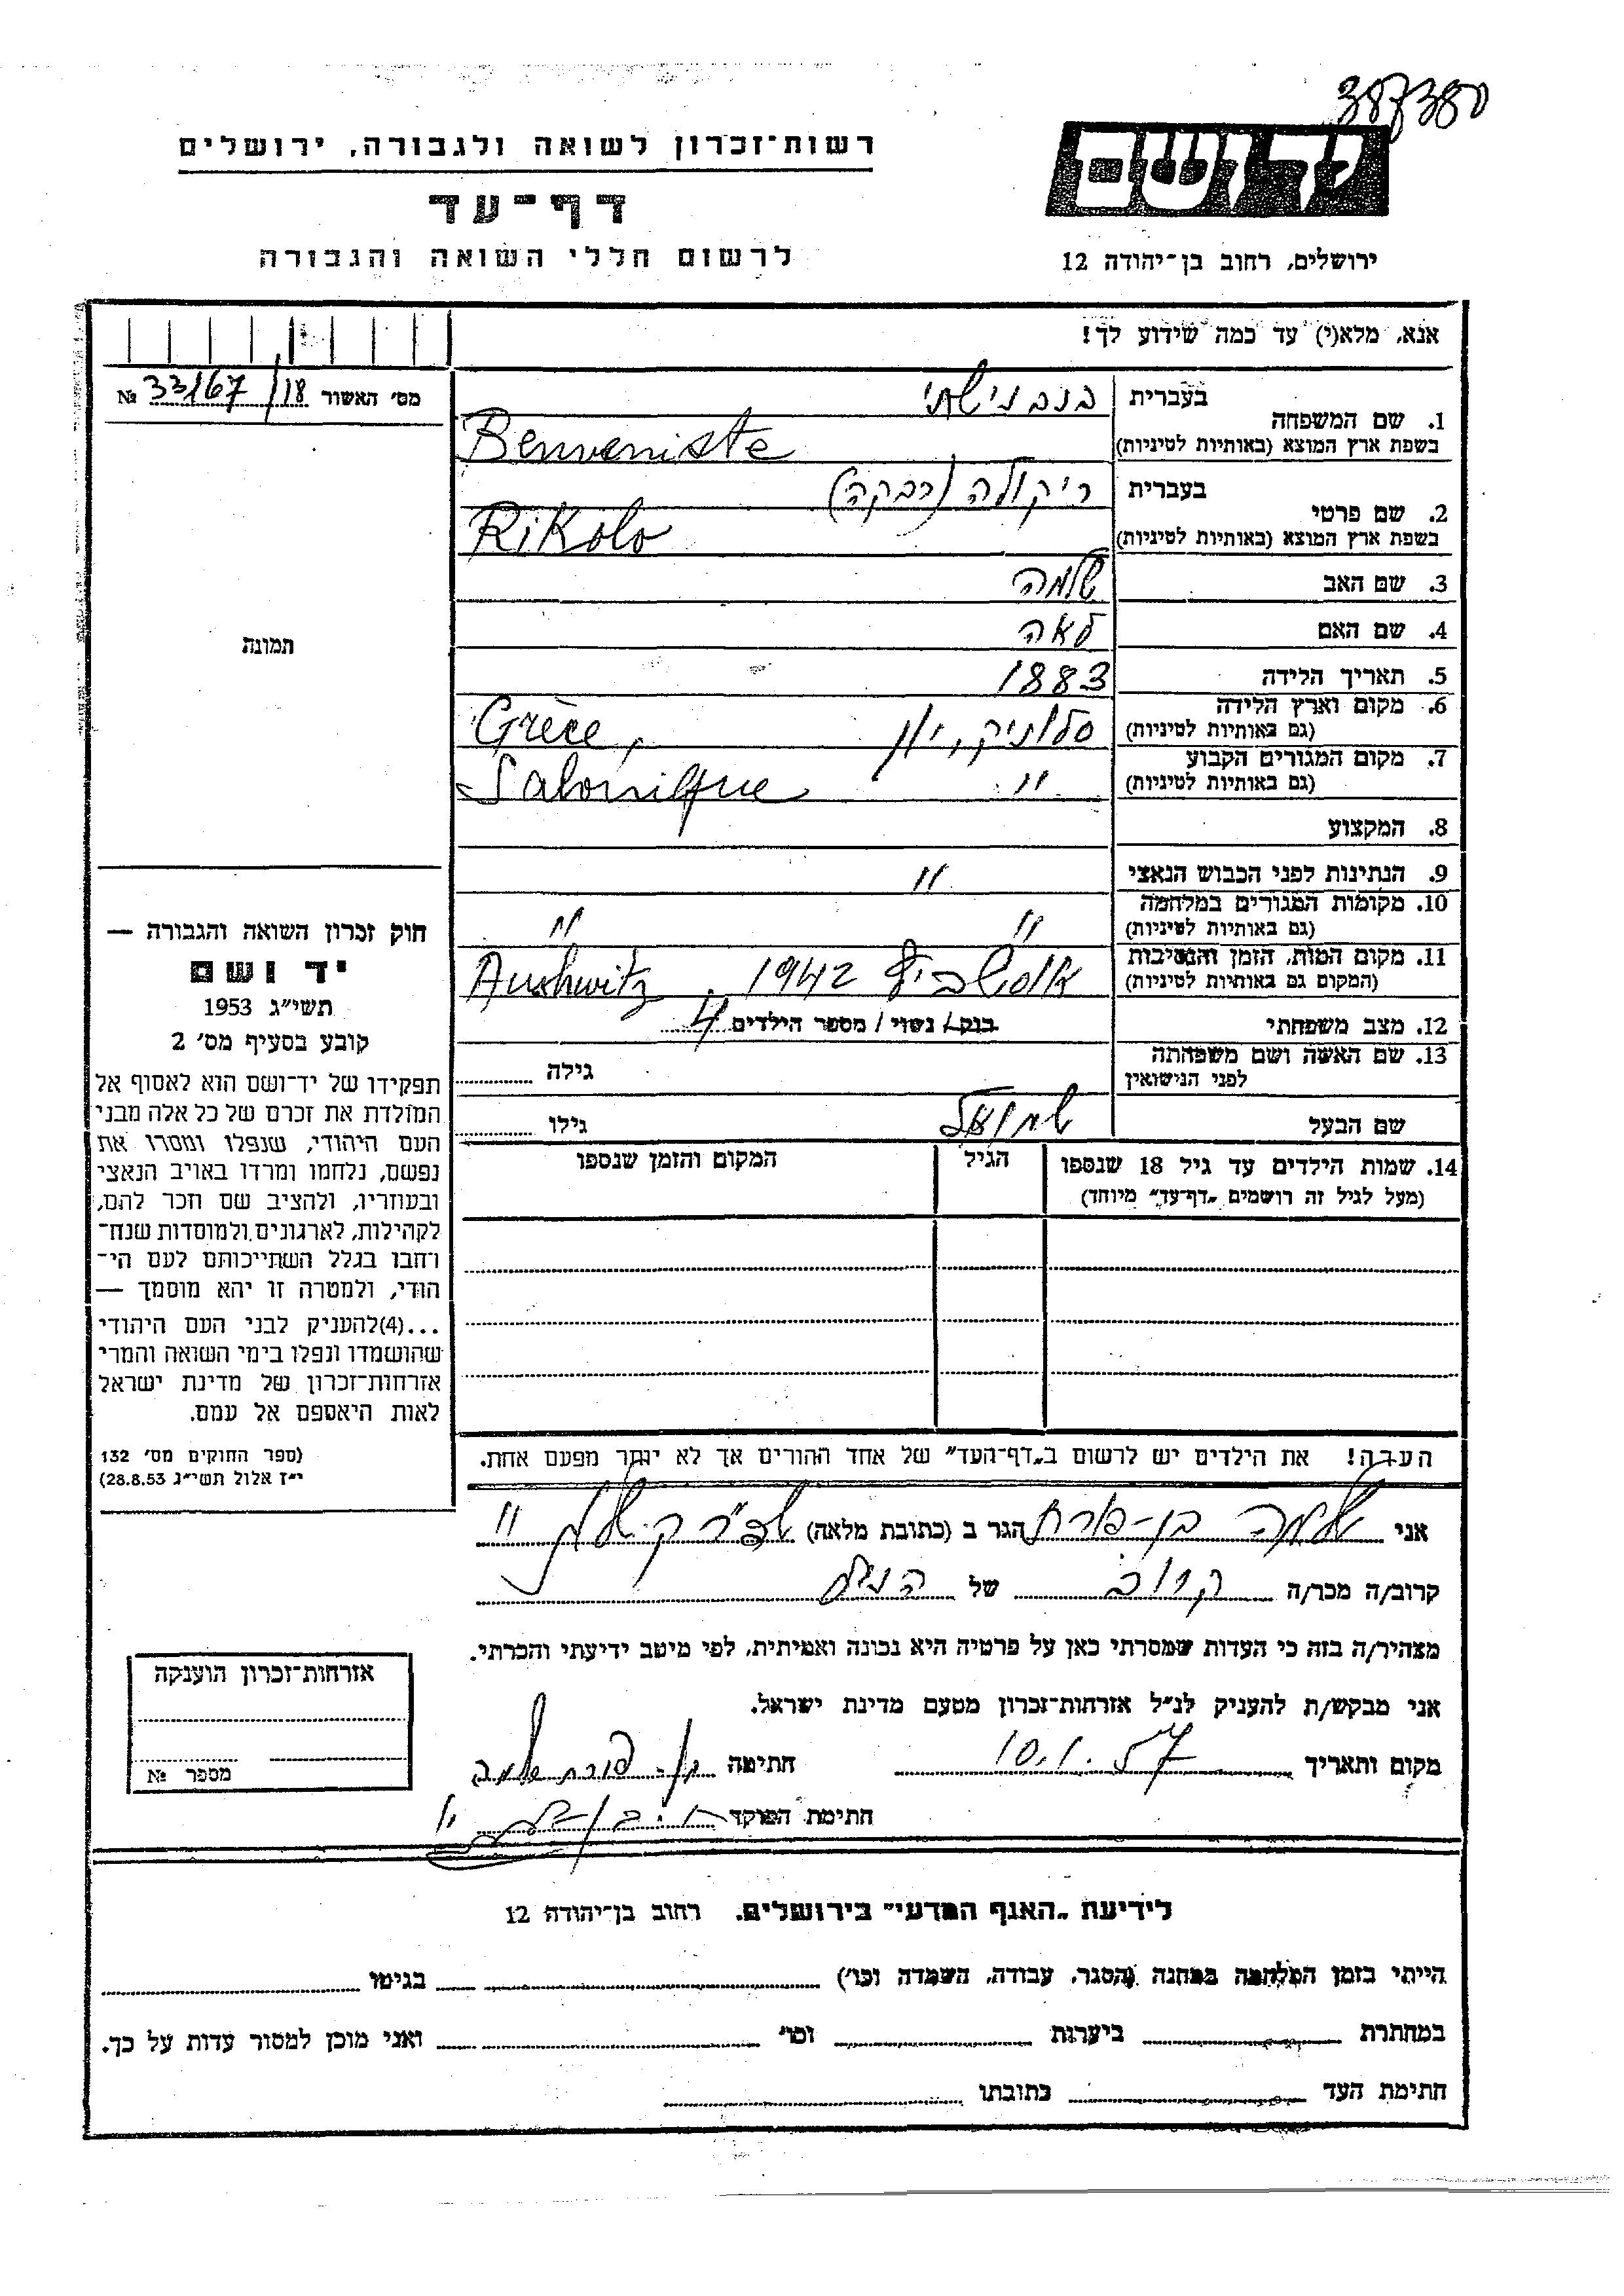 387380
ידושם
ירושלים, רחוב בן־יהודה 12
רשות־זכרון לשואה ולגבורה, ירושלים
דף־עד
לרשום חללי השואה והגבורה
אנא, מלא(י) עד כמה שידוע לך!
מס׳ האשור 33167/18 №
תמונה
1. שם המשפחה
בעברית בנבנישתי
בשפת ארץ המוצא (באותיות לטיניות) Benveniste
2. שם פרטי
בעברית ריקולה (רבקה)
בשפת ארץ המוצא (באותיות לטיניות) Rikolo
3. שם האב שלמה
4. שם האם לאה
5. תאריך הלידה 1883
6. מקום וארץ הלידה סלוניק, יון Grèce,
(גם באותיות לטיניות)
7. מקום המגורים הקבוע " Salonique
(גם באותיות לטיניות)
8. המקצוע
9. הנתינות לפני הכבוש הנאצי "
10. מקומות המגורים במלחמה " "
(גם באותיות לטיניות)
11. מקום המות, הזמן והנסיבות אושביץ 1942. Aushwitz
(המקום גם באותיות לטיניות)
12. מצב משפחתי רווק / נשוי / מספר הילדים 4
13. שם האשה ושם משפחתה גילה
לפני הנישואין
שם הבעל שמואל גילו
14. שמות הילדים עד גיל 18 שנספו הגיל המקום והזמן שנספו
(מעל לגיל זה רושמים „דף־עד" מיוחד)
חוק זכרון השואה והגבורה —
יד ושם
תשי"ג 1953
קובע בסעיף מס׳ 2
תפקידו של יד־ושם הוא לאסוף אל
המולדת את זכרם של כל אלה מבני
העם היהודי, שנפלו ומסרו את
נפשם, נלחמו ומרדו באויב הנאצי
ובעוזריו, ולהציב שם וזכר להם,
לקהילות, לארגונים ולמוסדות שנח־
רחבו בגלל השתייכותם לעם הי־
הודי, ולמטרה זו יהא מוסמך —
...(4)להעניק לבני העם היהודי
שהושמדו ונפלו בימי השואה והמרי
אזרחות־זכרון של מדינת ישראל
לאות היאספם אל עמם.
(ספר החוקים מס׳ 132
י"ז אלול תשי"ג 28.8.53)
הערה! את הילדים יש לרשום ב„דף־העד" של אחד ההורים אך לא יותר מפעם אחת.
אני שלמה בן-פורת הגר ב (כתובת מלאה)
קרוב/ה מכר/ה קרוב של הנ"ל
מצהיר/ה בזה כי העדות שמסרתי כאן על פרטיה היא נכונה ואמיתית, לפי מיטב ידיעתי והכרתי.
אני מבקש/ת להעניק לנ"ל אזרחות־זכרון מטעם מדינת ישראל.
מקום ותאריך 10.1.57 חתימה בן פורת שלמה
חתימת הפוקד
אזרחות־זכרון הוענקה
מספר №
לידיעת „האגף המדעי" בירושלים, רחוב בן־יהודה 12
הייתי בזמן המלחמה במחנה (הסגר, עבודה, השמדה וכו׳) בגיטו
במחתרת ביערות וכו׳ ואני מוכן למסור עדות על כך.
חתימת העד כתובתו